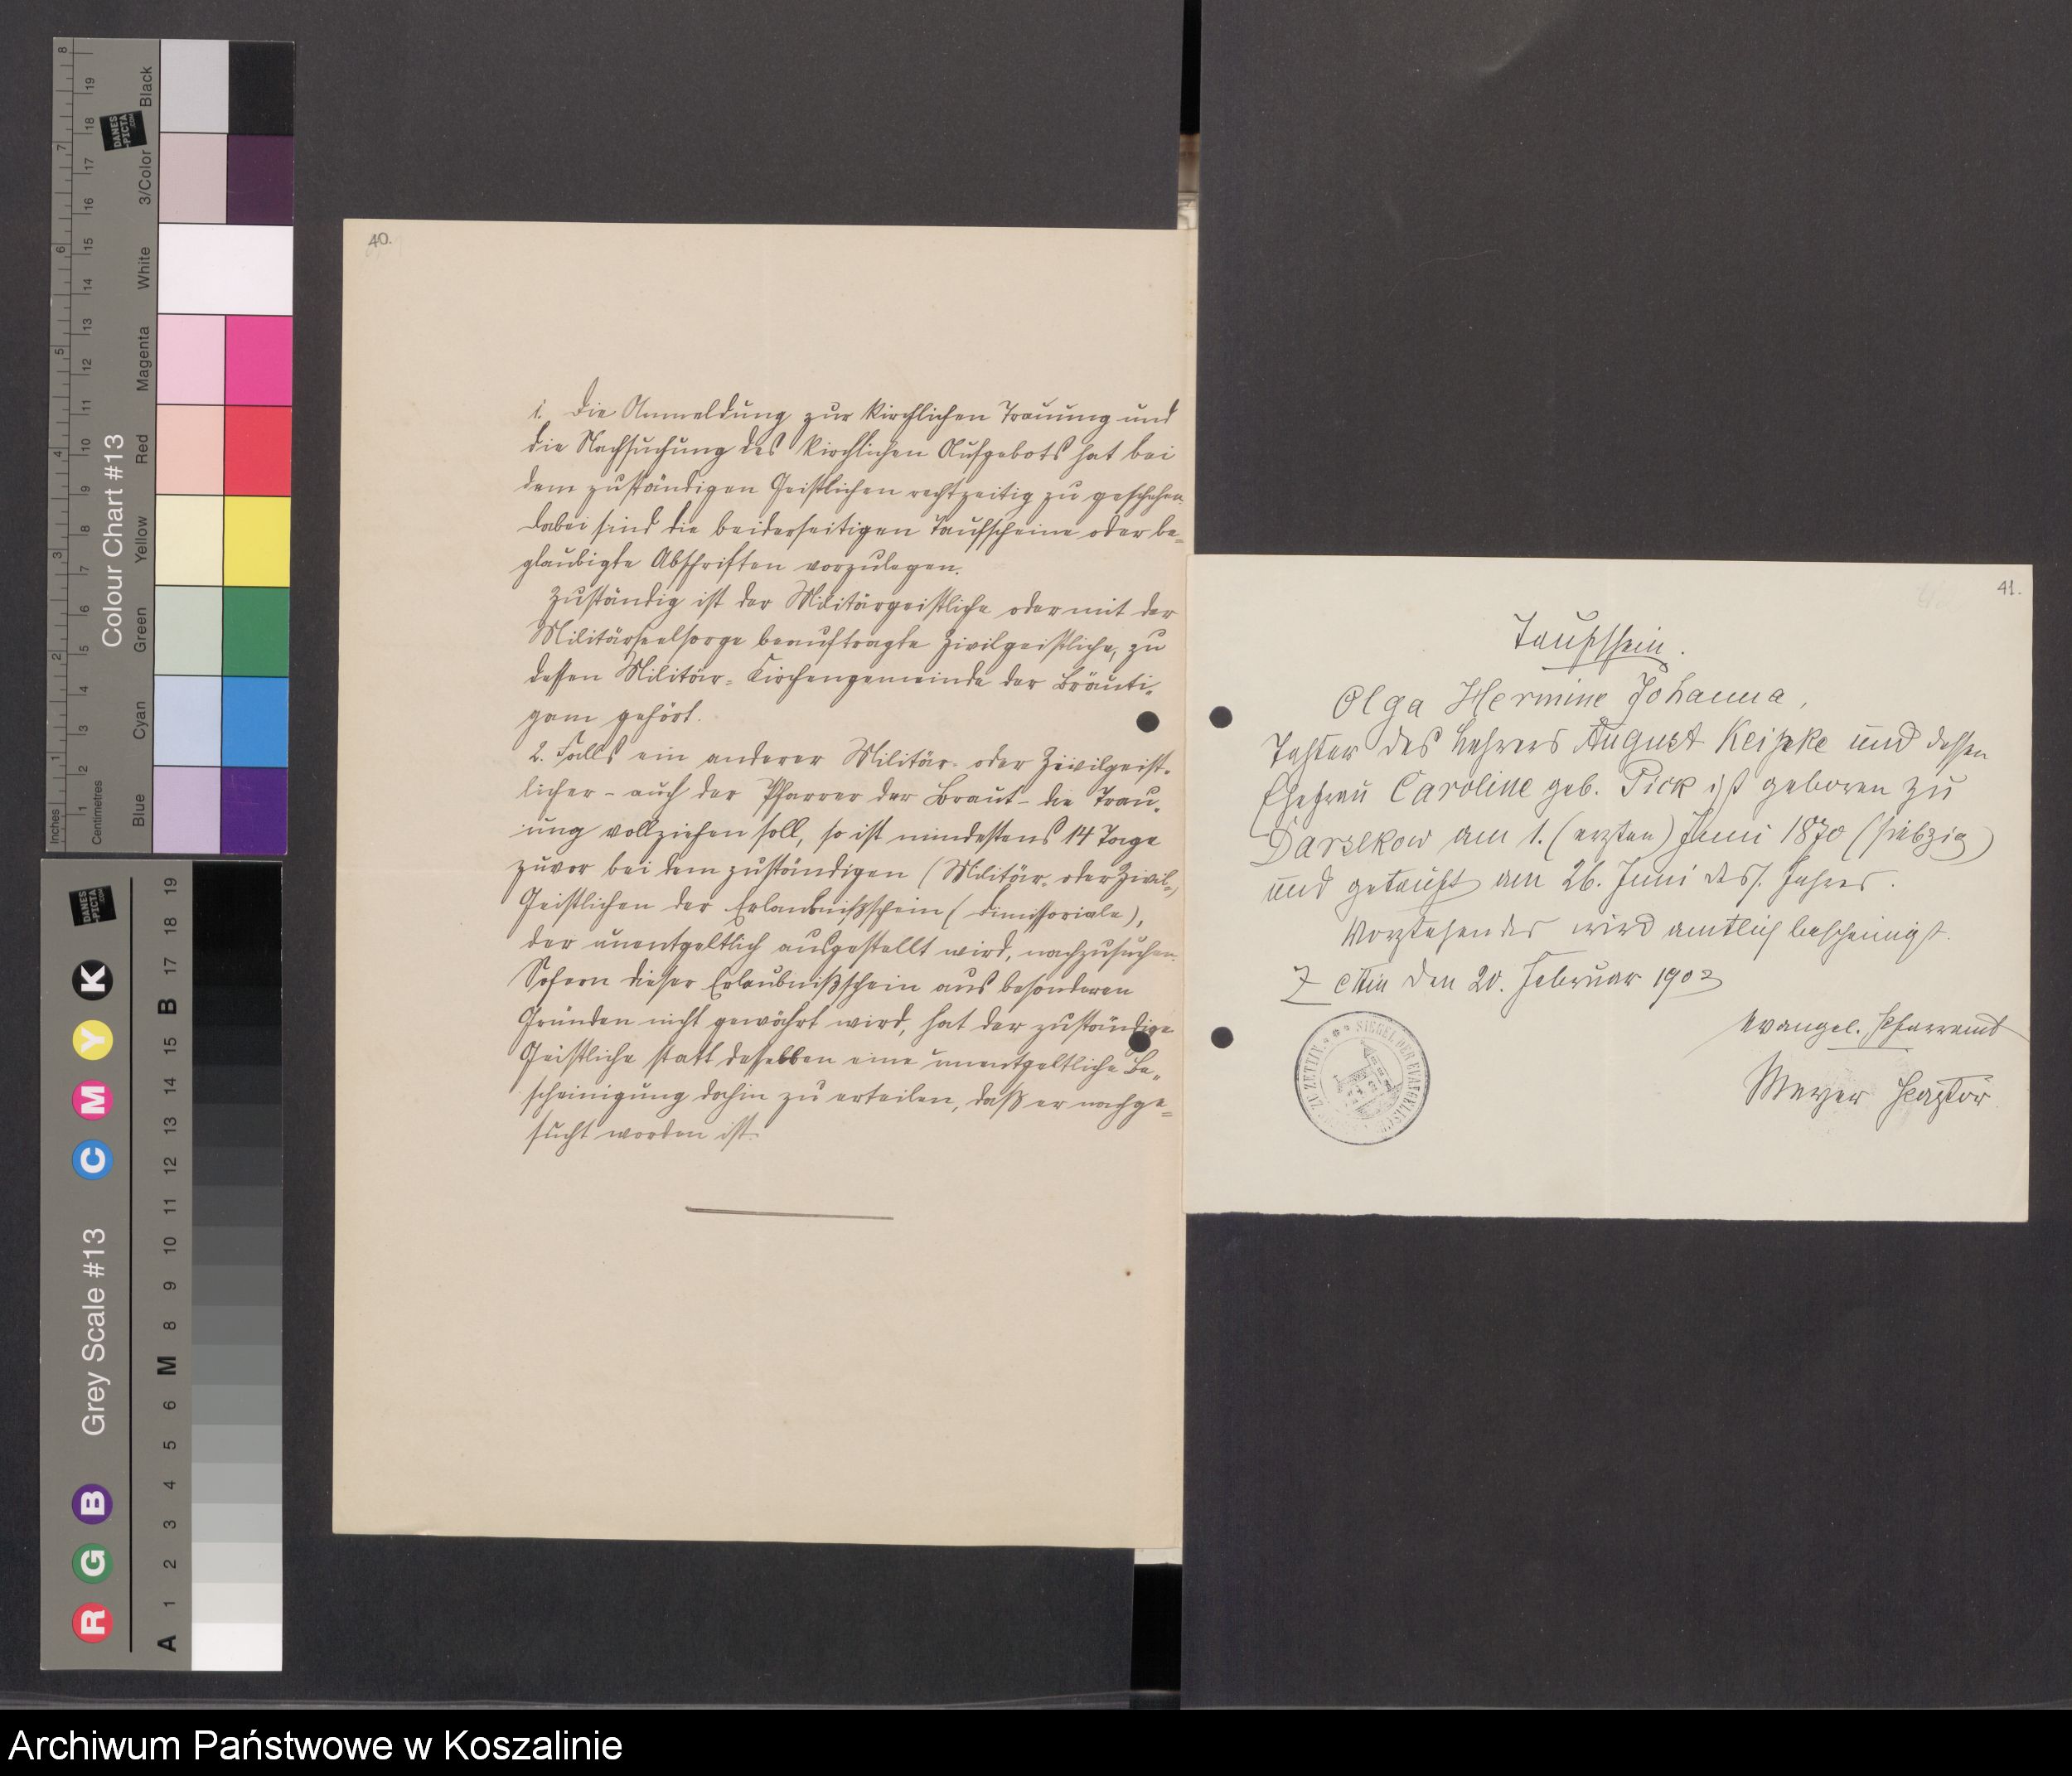 40.
1. Die Anmeldung zur kirchlichen Trauung und
die Nachsuchung des kirchlichen Aufgebots hat bei
dem zuständigen Geistlichen rechtzeitig zu geschehen.
Dabei sind die beiderseitigen Taufscheine oder be-
glaubigte Abschriften vorzulegen.
Zuständig ist der Militärgeistliche oder mit der
Militärseelsorge beauftragte Zivilgeistliche, zu
dessen Militär-Kirchengemeinde der Bräuti-
gam gehört.
2. Falls ein anderer Militär- oder Zivilgeist-
licher - auch der Pfarrer der Braut - die Trau-
ung vollziehen soll, so ist mindestens 14 Tage
zuvor bei dem zuständigen (Militär- oder Zivil-)
Geistlichen der Erlaubnißschein (Dimissoriale),
der unentgeltlich ausgestellt wird, nachzusuchen.
Sofern dieser Erlaubnißschein aus besonderen
Gründen nicht gewährt wird, hat der zuständige
Geistliche statt desselben eine unentgeltliche Be-
scheinigung dahin zu erteilen, daß er nachge-
sucht worden ist.
41.
Taufschein.
Olga Hermine Johanna,
Tochter des Lehrers August Keitzke und dessen
Ehefrau Caroline geb. Pick ist geboren zu
Darsekow am 1. (ersten) Juni 1870 (siebzig)
und getauft am 26. Juni dess. Jahres.
Vorstehendes wird amtlich bescheinigt.
Zettin den 20. Februar 1903
Evangel. Pfarramt
Meyer Pastor
SIEGEL DER EVANGELISCH
ZU ZETTIN
Colour Chart #13
Inches
Centimetres
Blue
Cyan
Green
Yellow
Red
Magenta
White
3/Color
Black
DANES
-PICTA
.COM
1 2 3 4 5 6 7 8
1 2 3 4 5 6 7 8 9 10 11 12 13 14 15 16 17 18 19
Grey Scale #13
R G B C M Y K
DANES
-PICTA
.COM
A 1 2 3 4 5 6 M 8 9 10 11 12 13 14 15 B 17 18 19
Archiwum Państwowe w Koszalinie